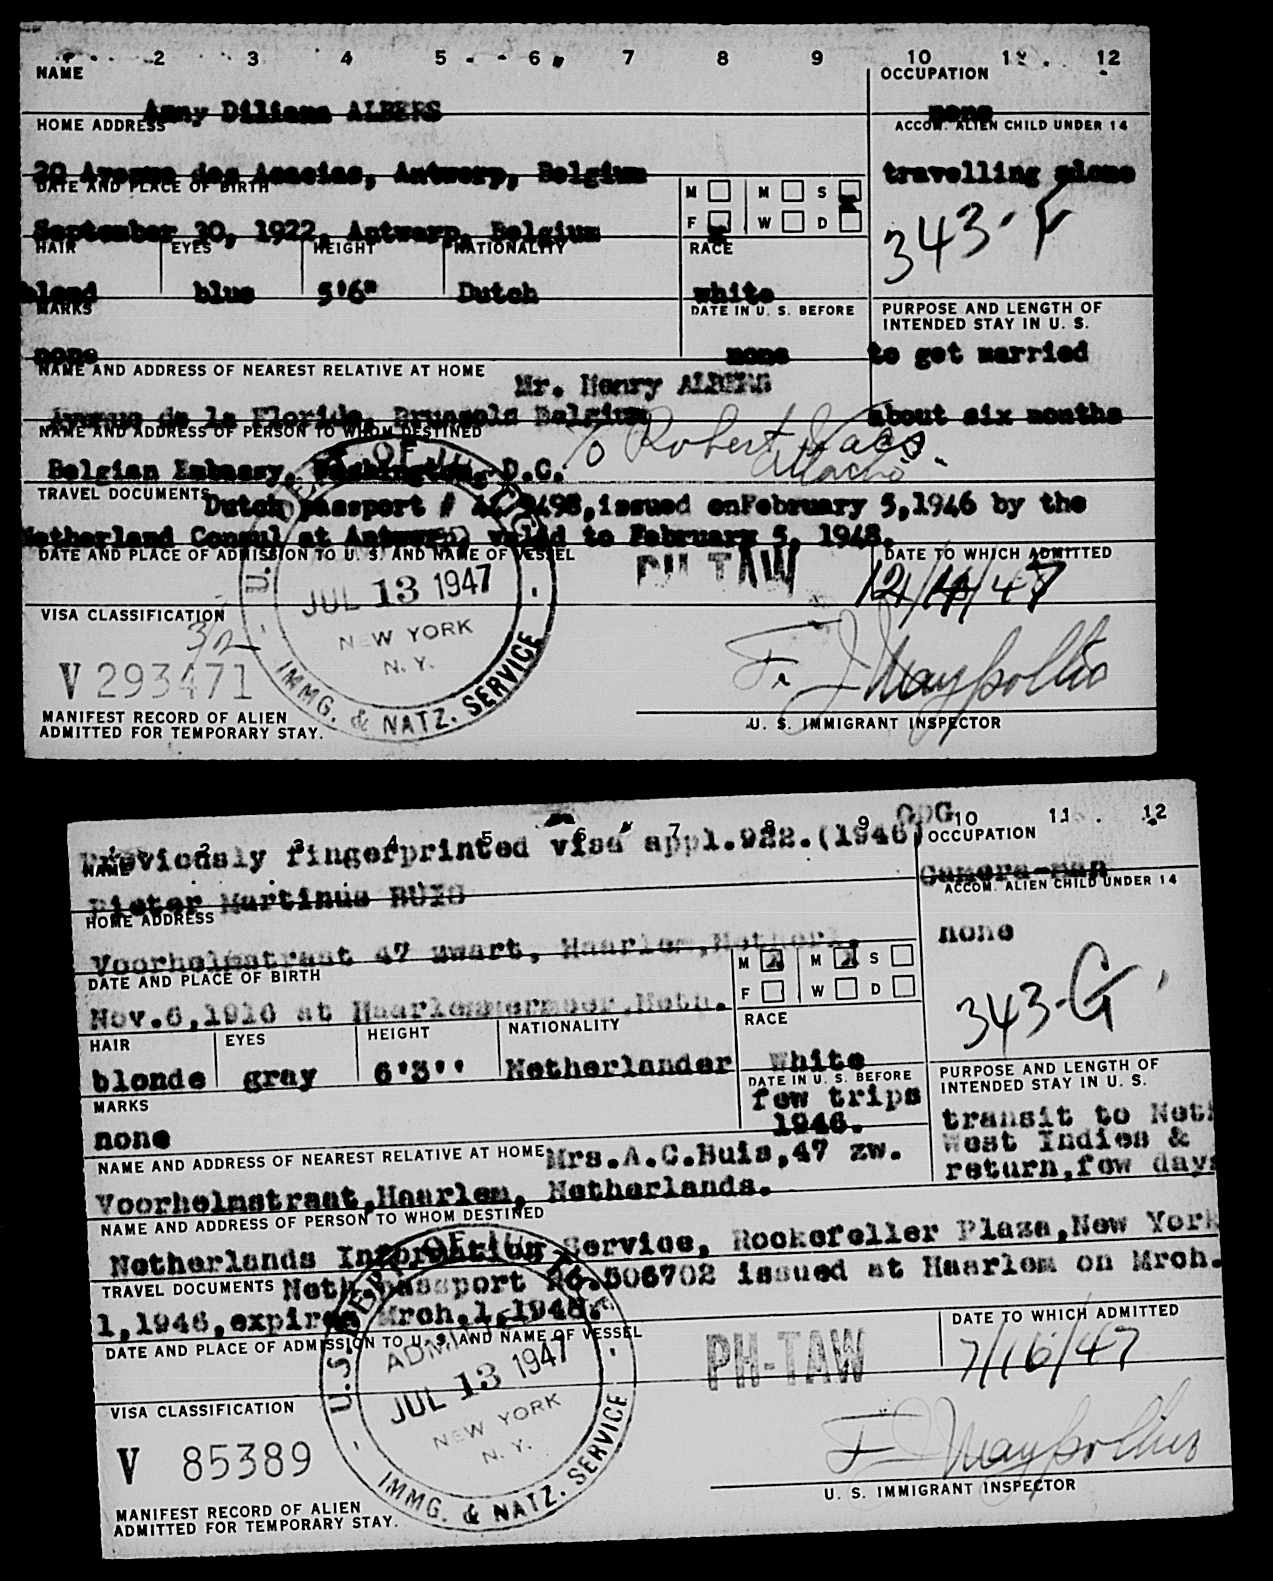 2 3 4 5 6 7 8 9 10 11 12
NAME
OCCUPATION
Anny Diliana ALBERS
none
HOME ADDRESS
ACCOM. ALIEN CHILD UNDER 14
20 Avenue des Acacias, Antwerp, Belgium
travelling alone
DATE AND PLACE OF BIRTH
M M S
September 30, 1922, Antwerp, Belgium
F W D
343-F
HAIR EYES HEIGHT NATIONALITY RACE
blond blue 5'6" Dutch white
MARKS
DATE IN U. S. BEFORE
PURPOSE AND LENGTH OF
INTENDED STAY IN U. S.
none
none
to get married
NAME AND ADDRESS OF NEAREST RELATIVE AT HOME
Mr. Henry ALBERS
Avenue de la Floride, Brussels Belgium
about six months
NAME AND ADDRESS OF PERSON TO WHOM DESTINED
% Robert
Belgian Embassy, Washington, D.C.
TRAVEL DOCUMENTS
Dutch passport # 9498, issued onFebruary 5,1946 by the
Netherland Consul at Antwerp, valid to February 5, 1948.
DATE AND PLACE OF ADMISSION TO U. S. AND NAME OF VESSEL
DATE TO WHICH ADMITTED
PH-TAW
JUL 13 1947
NEW YORK
N. Y.
IMMG. & NATZ. SERVICE
VISA CLASSIFICATION
3/2
V 293471
MANIFEST RECORD OF ALIEN
ADMITTED FOR TEMPORARY STAY.
U. S. IMMIGRANT INSPECTOR
2 3 4 5 6 7 8 9 10 11 12
Previously fingerprinted visa appl.922.(1946)
NAME
OCCUPATION
Pieter Martinus BUIS
Camera-man
HOME ADDRESS
ACCOM. ALIEN CHILD UNDER 14
Voorhelmstraat 47 zwart, Haarlem,Netherl.
none
DATE AND PLACE OF BIRTH
M M S
Nov.6,1916 at Haarlemmermeer,Neth.
F W D
343-G
HAIR EYES HEIGHT NATIONALITY RACE
blonde gray 6'3'' Netherlander White
MARKS
DATE IN U. S. BEFORE
PURPOSE AND LENGTH OF
INTENDED STAY IN U. S.
none
few trips
1946.
transit to Neth
West Indies &
return,few days
NAME AND ADDRESS OF NEAREST RELATIVE AT HOME
Mrs.A.C.Buis,47 zw.
Voorhelmstraat,Haarlem, Netherlands.
NAME AND ADDRESS OF PERSON TO WHOM DESTINED
Netherlands Information Service, Rockefeller Plaza,New York
TRAVEL DOCUMENTS
Neth.passport No.506702 issued at Haarlem on Mrch.
1,1946,expires Mrch.1,1948.
DATE AND PLACE OF ADMISSION TO U. S. AND NAME OF VESSEL
DATE TO WHICH ADMITTED
7/16/47
PH-TAW
ADMITTED
JUL 13 1947
NEW YORK
N. Y.
IMMG. & NATZ. SERVICE
VISA CLASSIFICATION
V 85389
MANIFEST RECORD OF ALIEN
ADMITTED FOR TEMPORARY STAY.
U. S. IMMIGRANT INSPECTOR